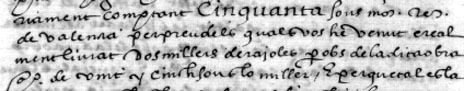 riament comptant Cinquanta sous mo. re.
de valencia per preu dels quals vos he venut e real
ment liurat dos millers de rajoles per obs de la dita obra
de vint y cinch sous lo miller, E perque tal es la